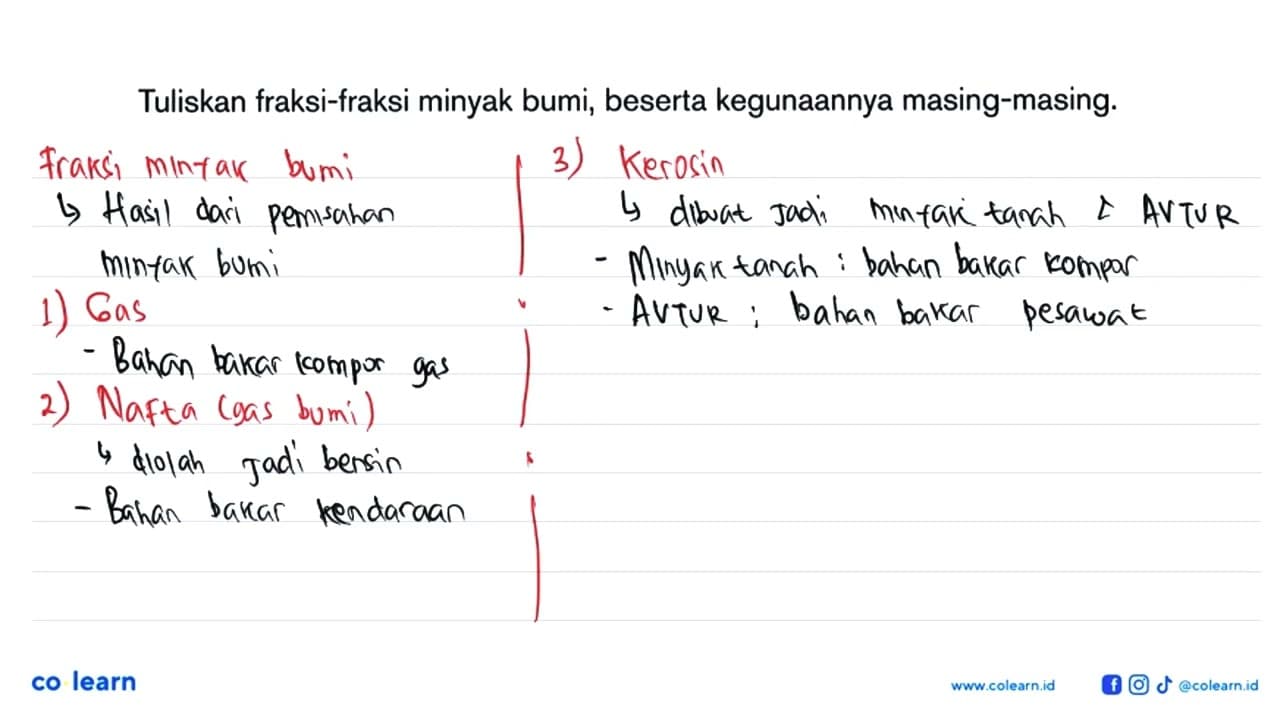 Tuliskan fraksi-fraksi minyak bumi, beserta kegunaannya masing-masing.
Fraksi minyak bumi
↳ Hasil dari pemisahan
minyak bumi
1) Gas
- Bahan bakar kompor gas
2) Nafta (gas bumi)
↳ diolah jadi bensin
- Bahan bakar kendaraan
3) Kerosin
↳ dibuat jadi minyak tanah & AVTUR
- Minyak tanah : bahan bakar kompor
- AVTUR : bahan bakar pesawat
co learn
www.colearn.id
@colearn.id